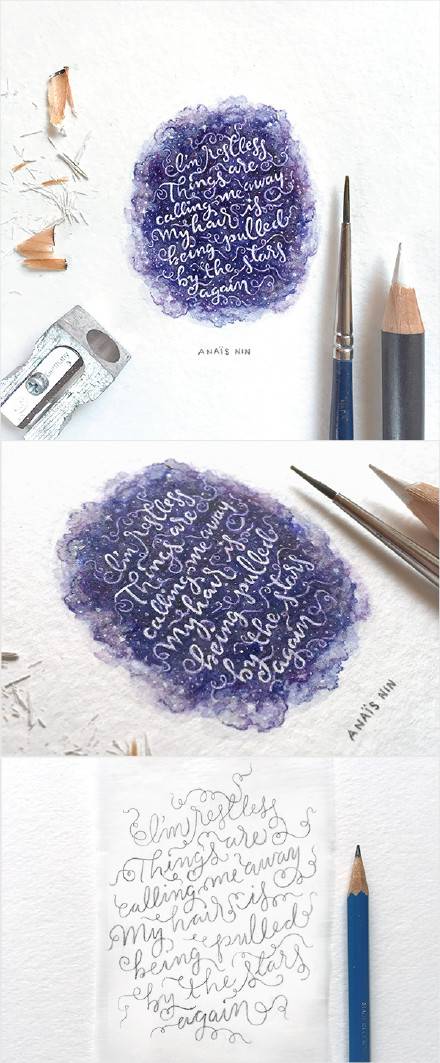 I'm restless
Things are
calling me away
My hair is
being pulled
by the stars
again
ANAÏS NIN
I'm restless
Things are
calling me away
My hair is
being pulled
by the stars
again
ANAÏS NIN
I'm restless
Things are
calling me away
My hair is
being pulled
by the stars
again